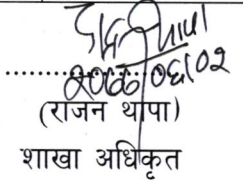 २०७७/०६/०२
(राजन थापा)
शाखा अधिकृत